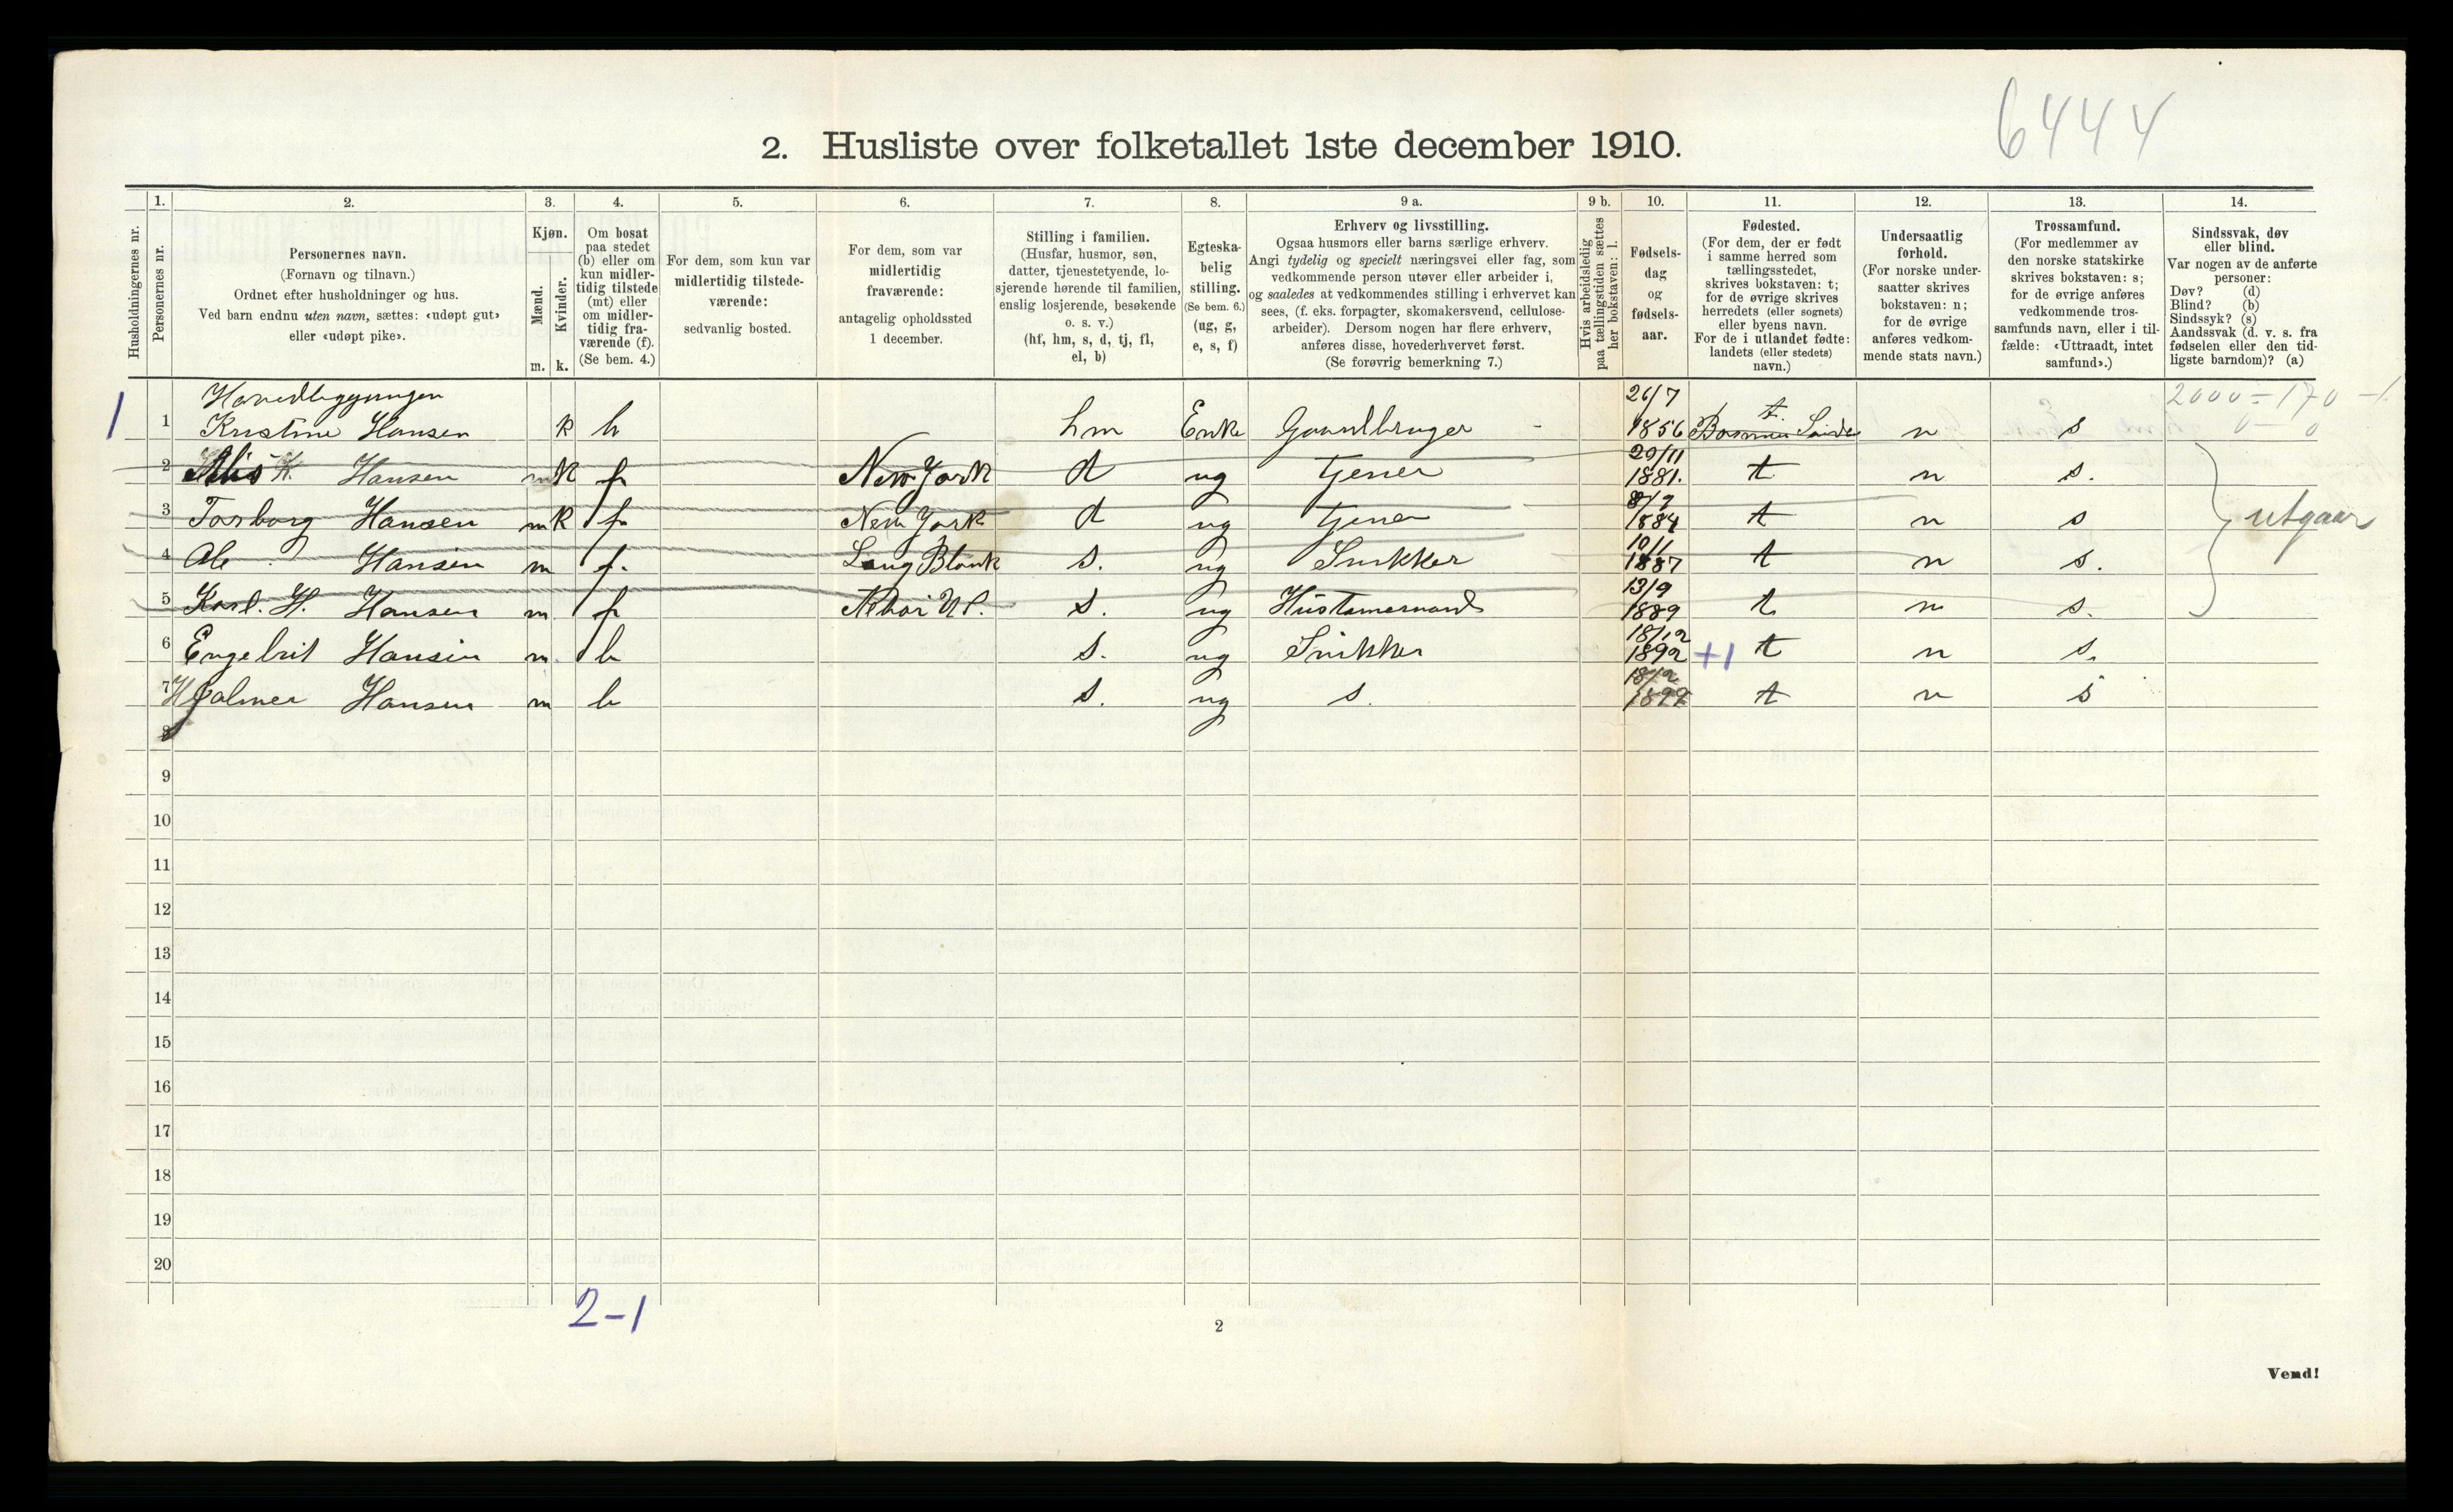 6444
2. Husliste over folketallet 1ste december 1910.
Husholdningernes nr.
1. Personernes nr.
2. Personernes navn.
(Fornavn og tilnavn.)
Ordnet efter husholdninger og hus.
Ved barn endnu uten navn, sættes: «udøpt gut»
eller «udøpt pike».
3. Kjøn.
Mænd. m.
Kvinder. k.
4. Om bosat
paa stedet
(b) eller om
kun midler-
tidig tilstede
(mt) eller
om midler-
tidig fra-
værende (f).
(Se bem. 4.)
5. For dem, som kun var
midlertidig tilstede-
værende:
sedvanlig bosted.
6. For dem, som var
midlertidig
fraværende:
antagelig opholdssted
1 december.
7. Stilling i familien.
(Husfar, husmor, søn,
datter, tjenestetyende, lo-
sjerende hørende til familien,
enslig losjerende, besøkende
o. s. v.)
(hf, hm, s, d, tj, fl,
el, b)
8. Egteska-
belig
stilling.
(Se bem. 6.)
(ug, g,
e, s, f)
9 a. Erhverv og livsstilling.
Ogsaa husmors eller barns særlige erhverv.
Angi tydelig og specielt næringsvei eller fag, som
vedkommende person utøver eller arbeider i,
og saaledes at vedkommendes stilling i erhvervet kan
sees, (f. eks. forpagter, skomakersvend, cellulose-
arbeider). Dersom nogen har flere erhverv,
anføres disse, hovederhvervet først.
(Se forøvrig bemerkning 7.)
9 b. Hvis arbeidsledig
paa tællingstiden sættes
her bokstaven: l.
10. Fødsels-
dag
og
fødsels-
aar.
11. Fødested.
(For dem, der er født
i samme herred som
tællingsstedet,
skrives bokstaven: t;
for de øvrige skrives
herredets (eller sognets)
eller byens navn.
For de i utlandet fødte:
landets (eller stedets)
navn.)
12. Undersaatlig
forhold.
(For norske under-
saatter skrives
bokstaven: n;
for de øvrige
anføres vedkom-
mende stats navn.)
13. Trossamfund.
(For medlemmer av
den norske statskirke
skrives bokstaven: s;
for de øvrige anføres
vedkommende tros-
samfunds navn, eller i til-
fælde: «Uttraadt, intet
samfund».)
14. Sindssvak, døv
eller blind.
Var nogen av de anførte
personer:
Døv? (d)
Blind? (b)
Sindssyk? (s)
Aandssvak (d. v. s. fra
fødselen eller den tid-
ligste barndom)? (a)
2000 = 170 - 1
1 1 Kristine Hansen k b hm Enke Gaardbruger 26/7 1856 t. n s
2 K. Hansen m k f New York d ug tjener 29/11 1881. t n s.
3 Torborg Hansen m k f New York d ug tjener 1884 t n s utgaar
4 Ole Hansen m f. s. ug Snikker 10/1 1887 t n s.
5 Karl. H. Hansen m f s. ug 13/9 1889 t n s.
6 Engebrit Hansen m. b s. ug Snikker 18/12 1892 +1 t n s.
7 Hjalmer Hansen m b s. ug s. t n s
8
9
10
11
12
13
14
15
16
17
18
19
20
2-1
2
Vend!